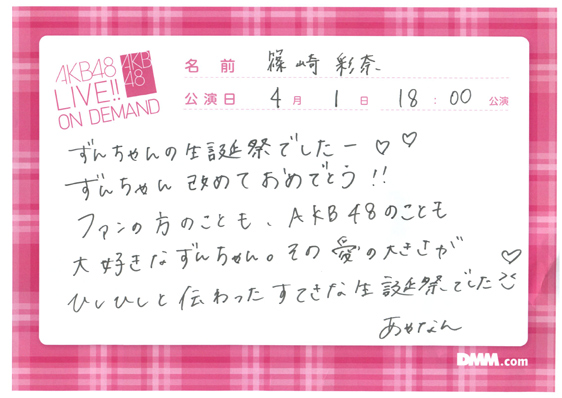 AKB48
LIVE!!
ON DEMAND
AKB
48
名 前 篠崎 彩奈
公演日 4月 1日 18:00 公演
ずんちゃんの生誕祭でしたー♡♡
ずんちゃん改めておめでとう!!
ファンの方のことも、AKB48のことも
大好きなずんちゃん。その愛の大きさが
ひしひしと伝わったすてきな生誕祭でした♡
あやなん
DMM.com